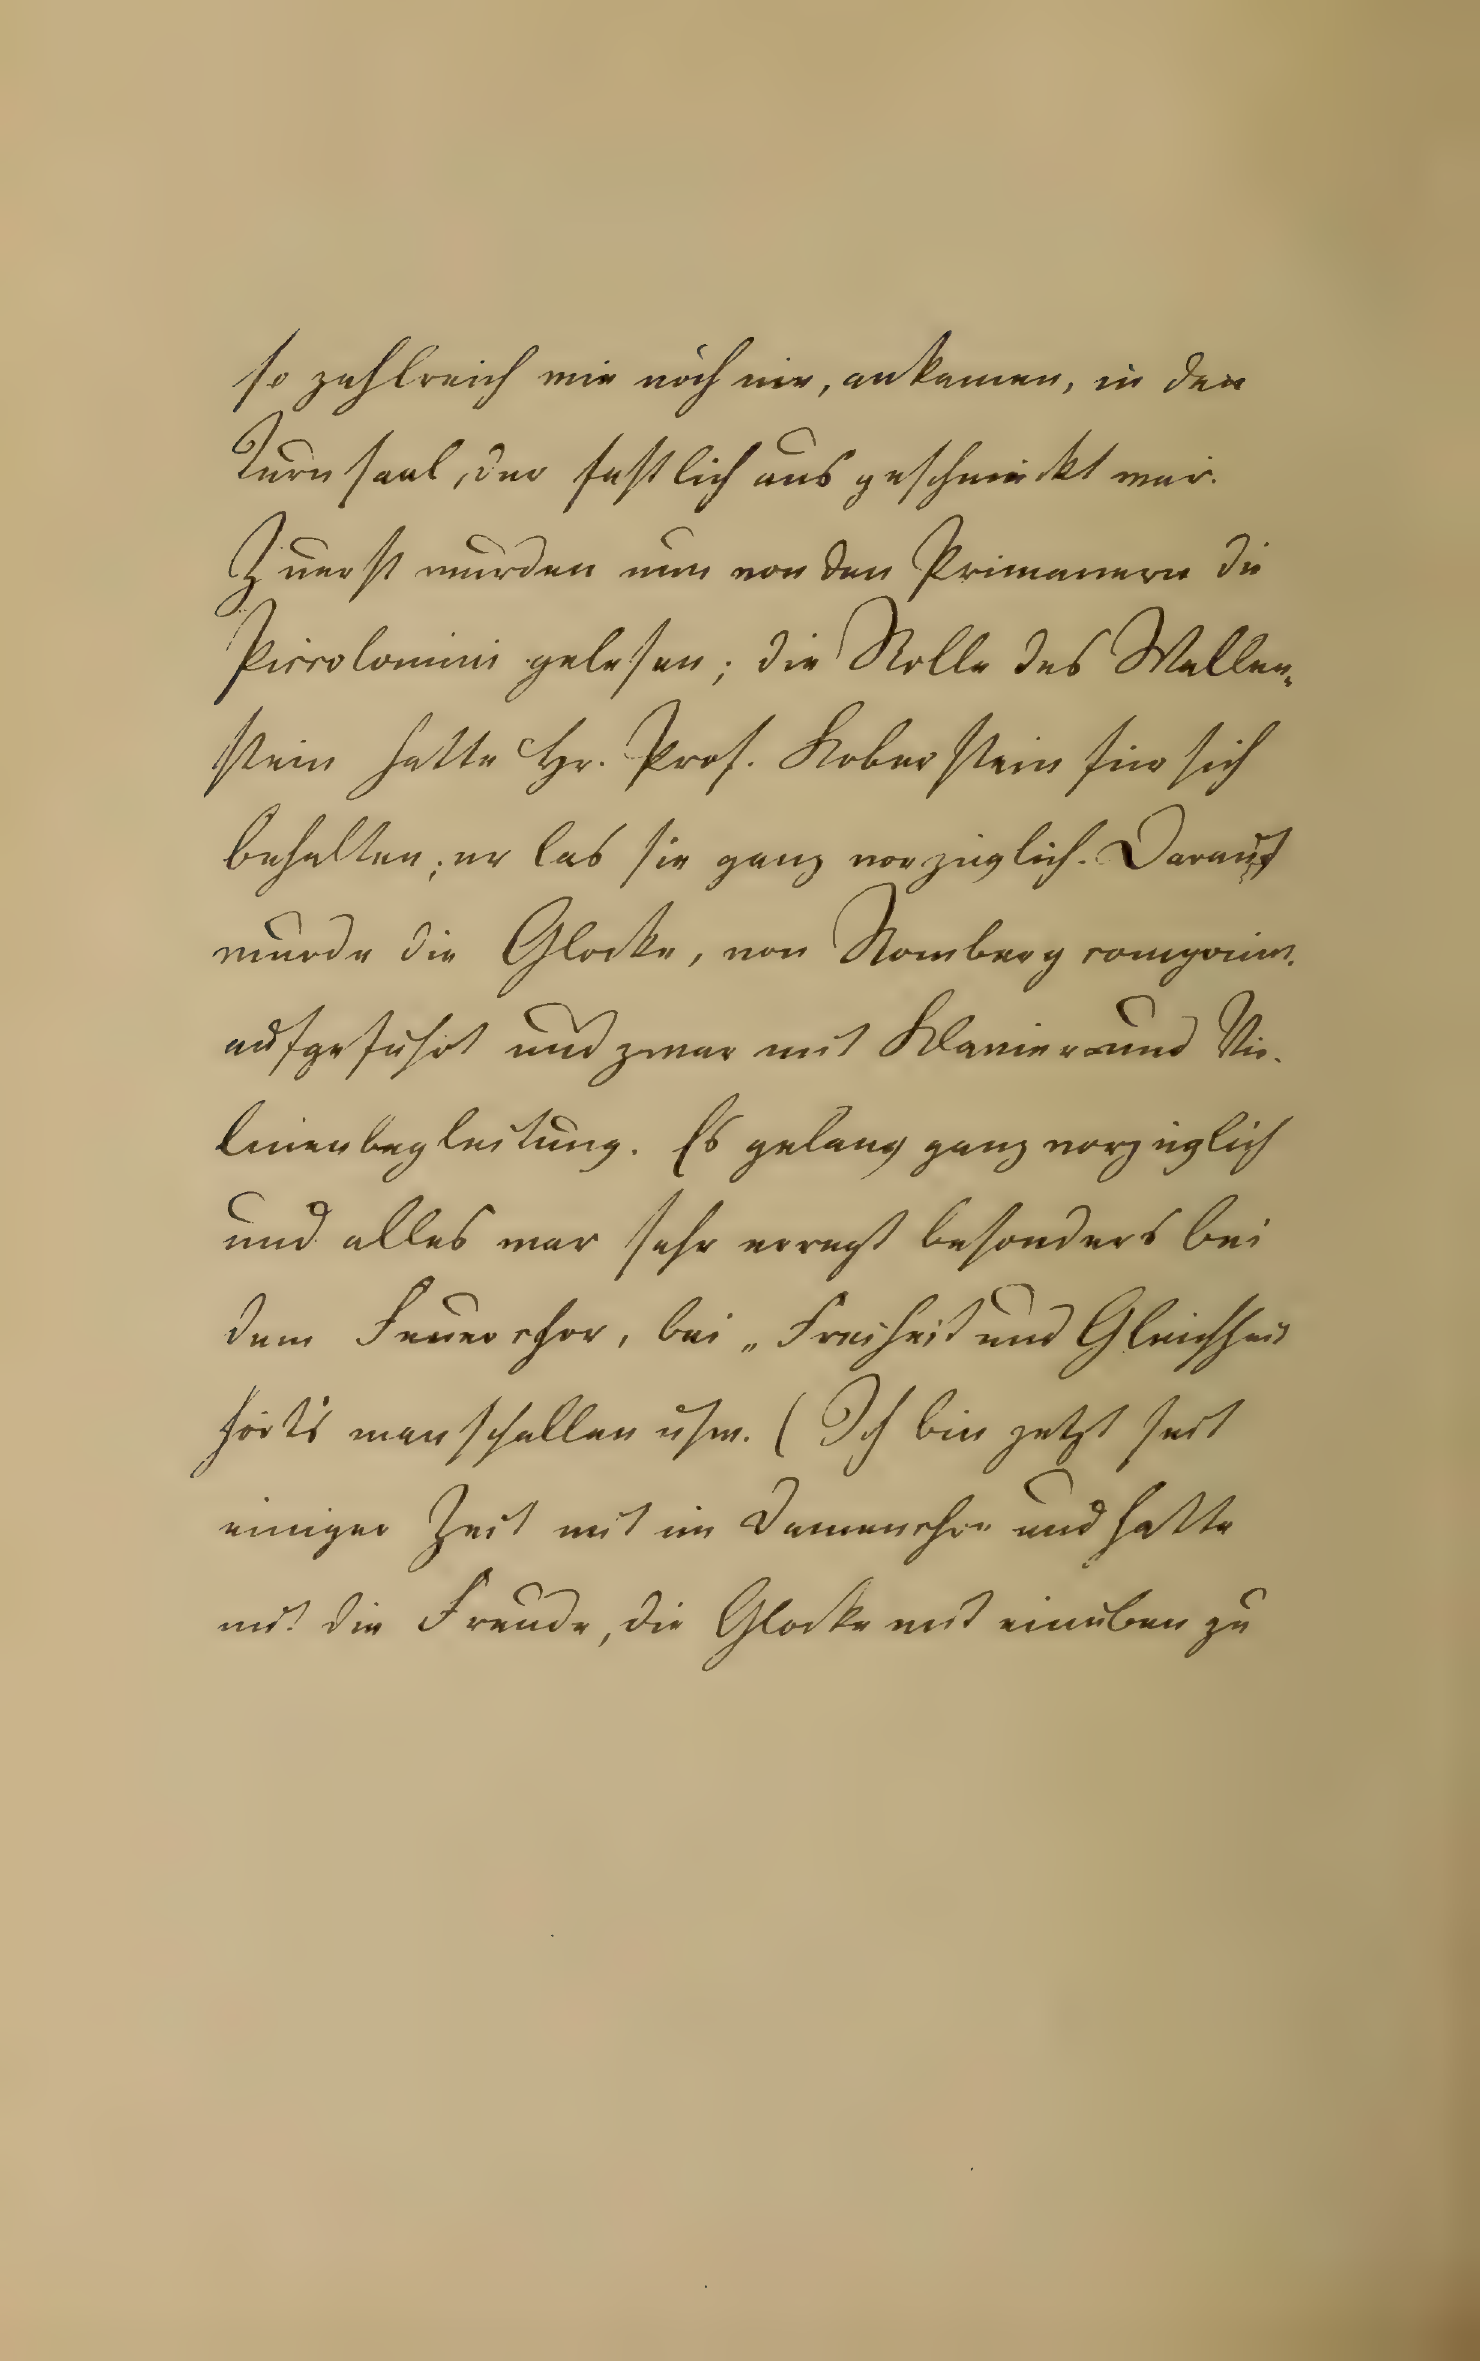 so zahlreich wie noch nie, ankamen, in den
Turnsaal, der festlich ausgeschmückt war.
Zuerst wurden nun von den Primanern die
Piccolomini gelesen; die Rolle des Wallen-
stein hatte Hr. Prof. Koberstein für sich
behalten; er las sie ganz vorzüglich. Darauf
wurde die Glocke, von Romberg
aufgeführt und zwar mit Klavier und Vio-
linenbegleitung. Es gelang ganz vorzüglich
und alles war sehr erregt besonders bei
dem Feuerchor, bei „Freiheit und Gleichheit
hört's man schallen usw. (Ich bin jetzt seit
einiger Zeit mit im Damenchor und hatte
mit die Freude, die Glocke mit einüben zu